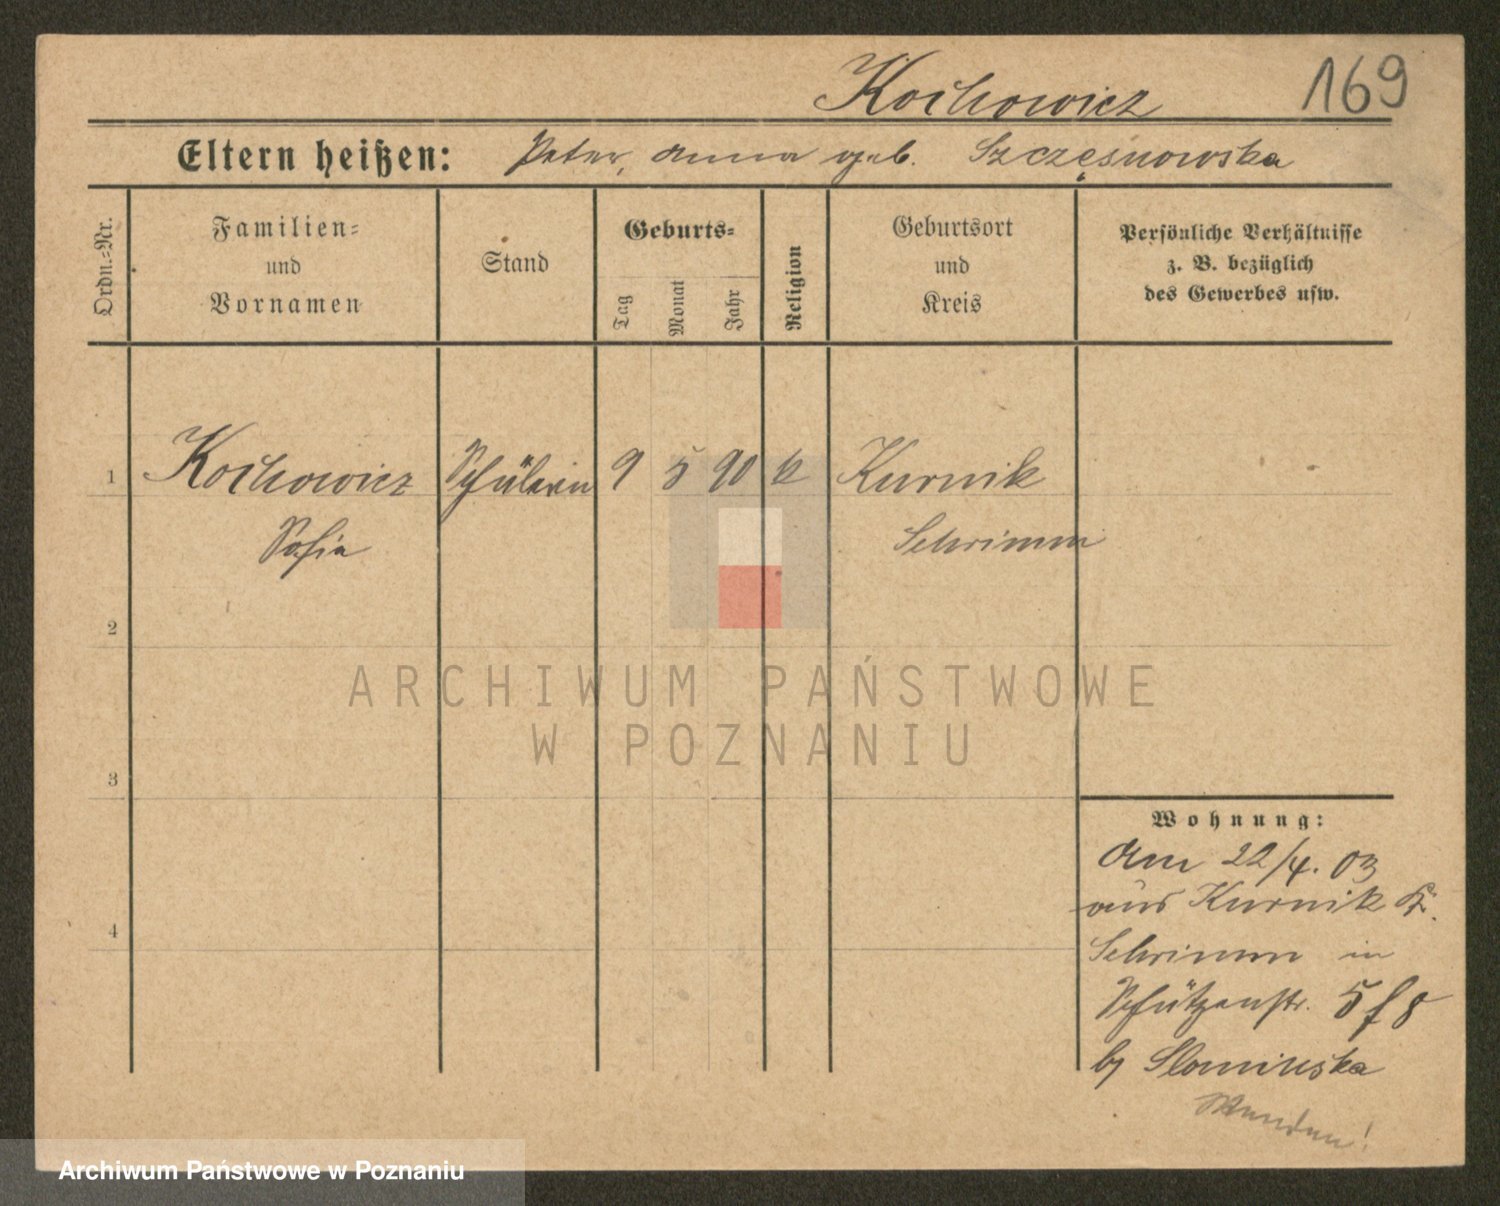 Kochowicz 169
Eltern heißen: Peter, Anna geb. Szczęsnowska
Ordn.-Nr.
Familien-
und
Vornamen
Stand
Geburts-
Tag
Monat
Jahr
Religion
Geburtsort
und
Kreis
Persönliche Verhältnisse
z. B. bezüglich
des Gewerbes usw.
1 Kochowicz Schülerin 9 5 90 k Kurnik
Sofia Schrimm
2
ARCHIWUM PAŃSTWOWE
W POZNANIU
3
Wohnung:
Am 22/4. 03
aus Kurnik Kr.
4
Schrimm in
Schützenstr. 5 f 8
by Slominska
Wenden!
Archiwum Państwowe w Poznaniu